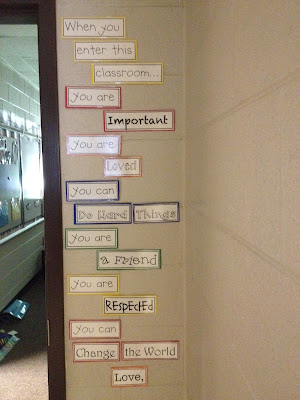 When you
enter this
classroom...
You are
Important
You are
Loved
You can
Do Hard Things
You are
a Friend
You are
RESPECTED
You can
Change the World
Love,